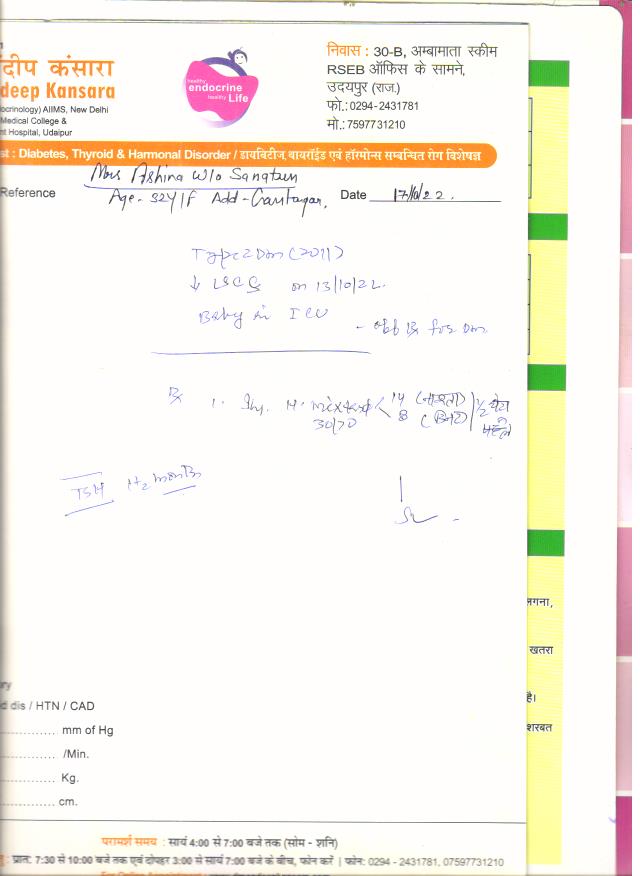 दीप कंसारा
deep Kansara
ocrinology) AIIMS, New Delhi
Medical College &
nt Hospital, Udaipur
healthy
endocrine
healthy Life
निवास : 30-B, अम्बामाता स्कीम
RSEB ऑफिस के सामने,
उदयपुर (राज.)
फो.: 0294-2431781
मो.: 7597731210
st : Diabetes, Thyroid & Harmonal Disorder / डायबिटीज, थायरॉईड एवं हॉरमोन्स सम्बन्धित रोग विशेषज्ञ
Mrs Ashina W/o
Reference Age- 32Y/F Add- Date 17/10/22.
Type 2 Dm (2011)
↓ LSCS on 13/10/22.
Baby in ICU
- Rx for Dm
Rx 1. Inj. H. mixtard 14 (नाश्ता) 1/2 घंटा
30/70 8 (डिनर) पहले
TSH 2 months
लगना,
खतरा
है।
शरबत
ry
d dis / HTN / CAD
............... mm of Hg
............... /Min.
............... Kg.
............... cm.
परामर्श समय : सायं 4:00 से 7:00 बजे तक (सोम - शनि)
: प्रात: 7:30 से 10:00 बजे तक एवं दोपहर 3:00 से सायं 7:00 बजे के बीच, फोन करें | फोन: 0294 - 2431781, 07597731210